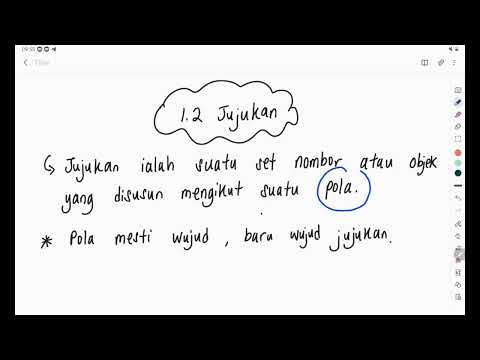 Title
1.2 Jujukan
Jujukan ialah suatu set nombor atau objek
yang disusun mengikut suatu pola.
* Pola mesti wujud, baru wujud jujukan.